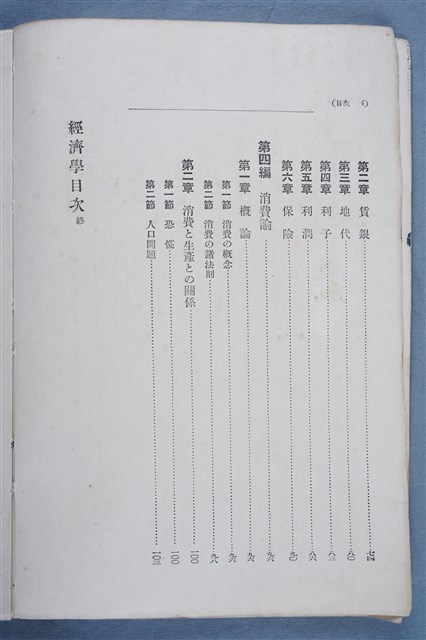 (目次)
第二章 賃銀……七四
第三章 地代……八〇
第四章 利子……八三
第五章 利潤……八六
第六章 保險……九〇
第四編 消費論……九六
第一章 概論……九六
第一節 消費の概念……九六
第二節 消費の諸法則……九八
第二章 消費と生產との關係……一〇〇
第一節 恐慌……一〇〇
第二節 人口問題……一〇三
經濟學目次 終